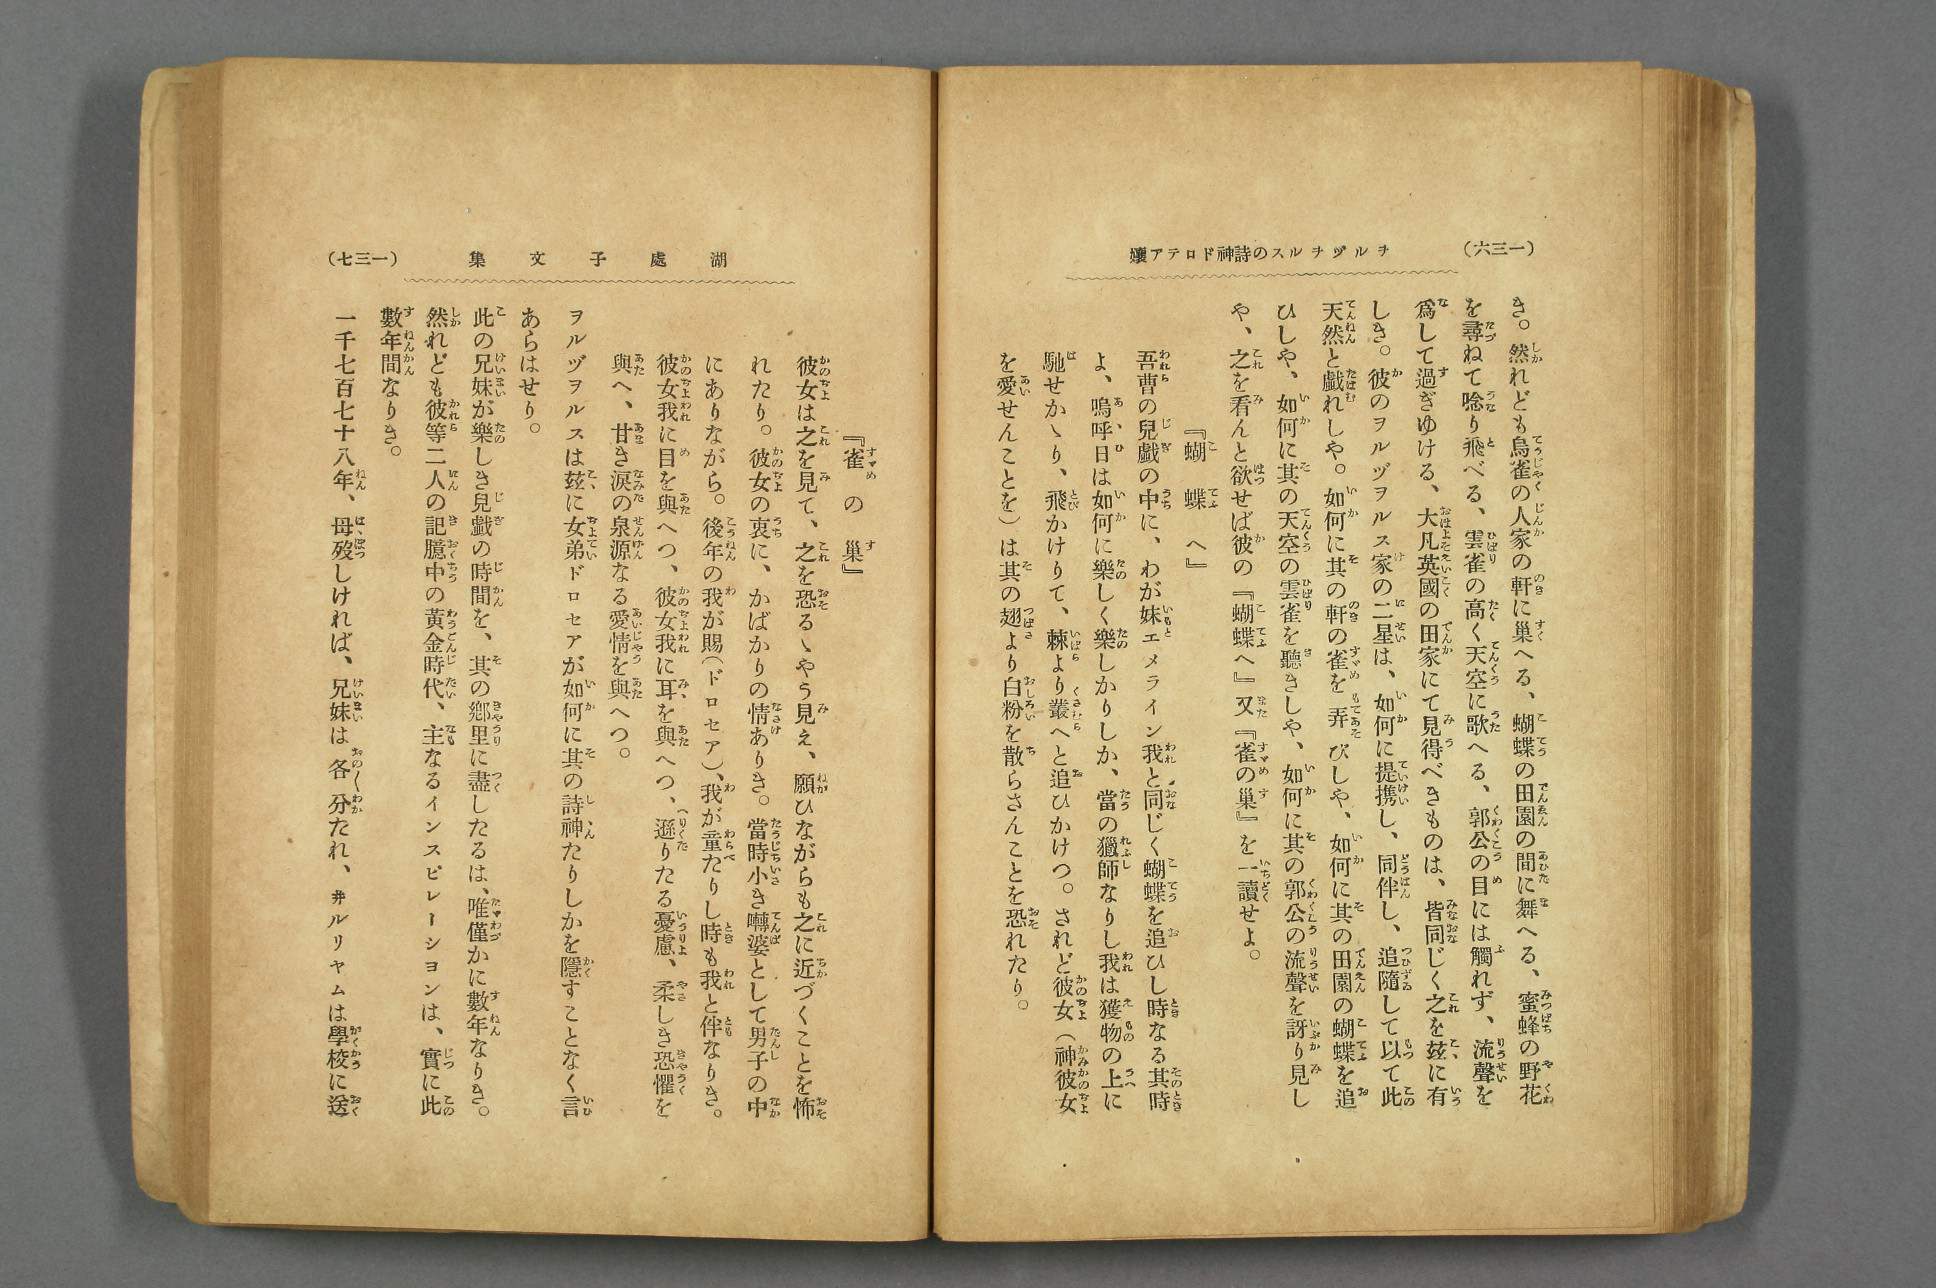 (一三六)
ヲルヅヲルスの詩神ドロテア孃
き。然れども烏雀の人家の軒に巢へる、蝴蝶の田園の間に舞へる、蜜蜂の野花
を尋ねて唸り飛べる、雲雀の高く天空に歌へる、郭公の目には觸れず、流聲を
爲して過ぎゆける、大凡英國の田家にて見得べきものは、皆同じく之を玆に有
しき。彼のヲルヅヲルス家の二星は、如何に提携し、同伴し、追隨して以て此
天然と戲れしや。如何に其の軒の雀を弄びしや、如何に其の田園の蝴蝶を追
ひしや、如何に其の天空の雲雀を聽きしや、如何に其の郭公の流聲を訝り見し
や、之を看んと欲せば彼の『蝴蝶へ』又『雀の巢』を一讀せよ。
『蝴蝶へ』
吾曹の兒戲の中に、わが妹エメライン我と同じく蝴蝶を追ひし時なる其時
よ、嗚呼日は如何に樂しく樂しかりしか、當の獵師なりし我は獲物の上に
馳せかゝり、飛かけりて、棘より叢へと追ひかけつ。されど彼女(神彼女
を愛せんことを)は其の翅より白粉を散らさんことを恐れたり。
湖處子文集
(一三七)
『雀の巢』
彼女は之を見て、之を恐るゝやう見え、願ひながらも之に近づくことを怖
れたり。彼女の衷に、かばかりの情ありき。當時小き囀婆として男子の中
にありながら。後年の我が賜(ドロセア)、我が童たりし時も我と伴なりき。
彼女我に目を與へつ、彼女我に耳を與へつ、遜りたる憂慮、柔しき恐懼を
與へ、甘き淚の泉源なる愛情を與へつ。
ヲルヅヲルスは玆に女弟ドロセアが如何に其の詩神たりしかを隱すことなく言
あらはせり。
此の兄妹が樂しき兒戲の時間を、其の鄕里に盡したるは、唯僅かに數年なりき。
然れども彼等二人の記臆中の黃金時代、主なるインスピレーシヨンは、實に此
數年間なりき。
一千七百七十八年、母歿しければ、兄妹は各〻分たれ、ヰルリヤムは學校に送